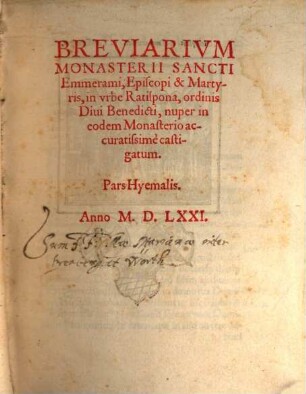 BREVIARIVM
MONASTERII SANCTI
Emmerami, Episcopi & Marty-
ris, in vrbe Ratispona, ordinis
Diui Benedicti, nuper in
eodem Monasterio ac-
curatissimè casti-
gatum.
Pars Hyemalis.
Anno M. D. LXXI.